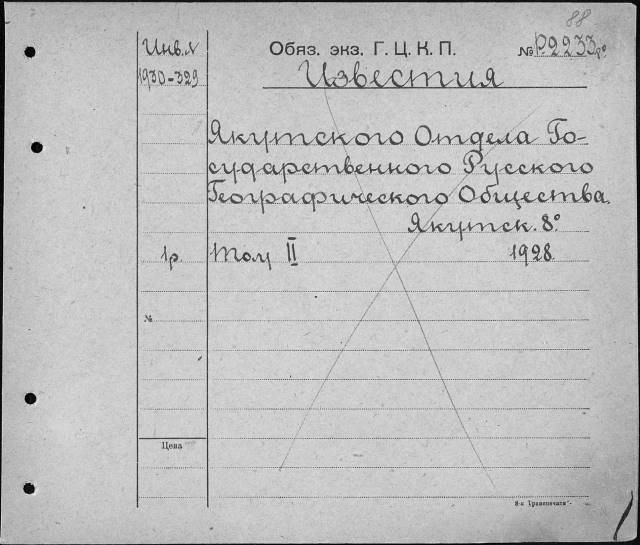 88
Инв. N
Обяз. экз. Г. Ц. К. П.
№ Р2233 8°
1930-329
Известия
Якутского Отдела Го-
сударственного Русского
Географического Общества.
Якутск. 8°
1р. Том II 1928
№
Цена
8-я Транспечати